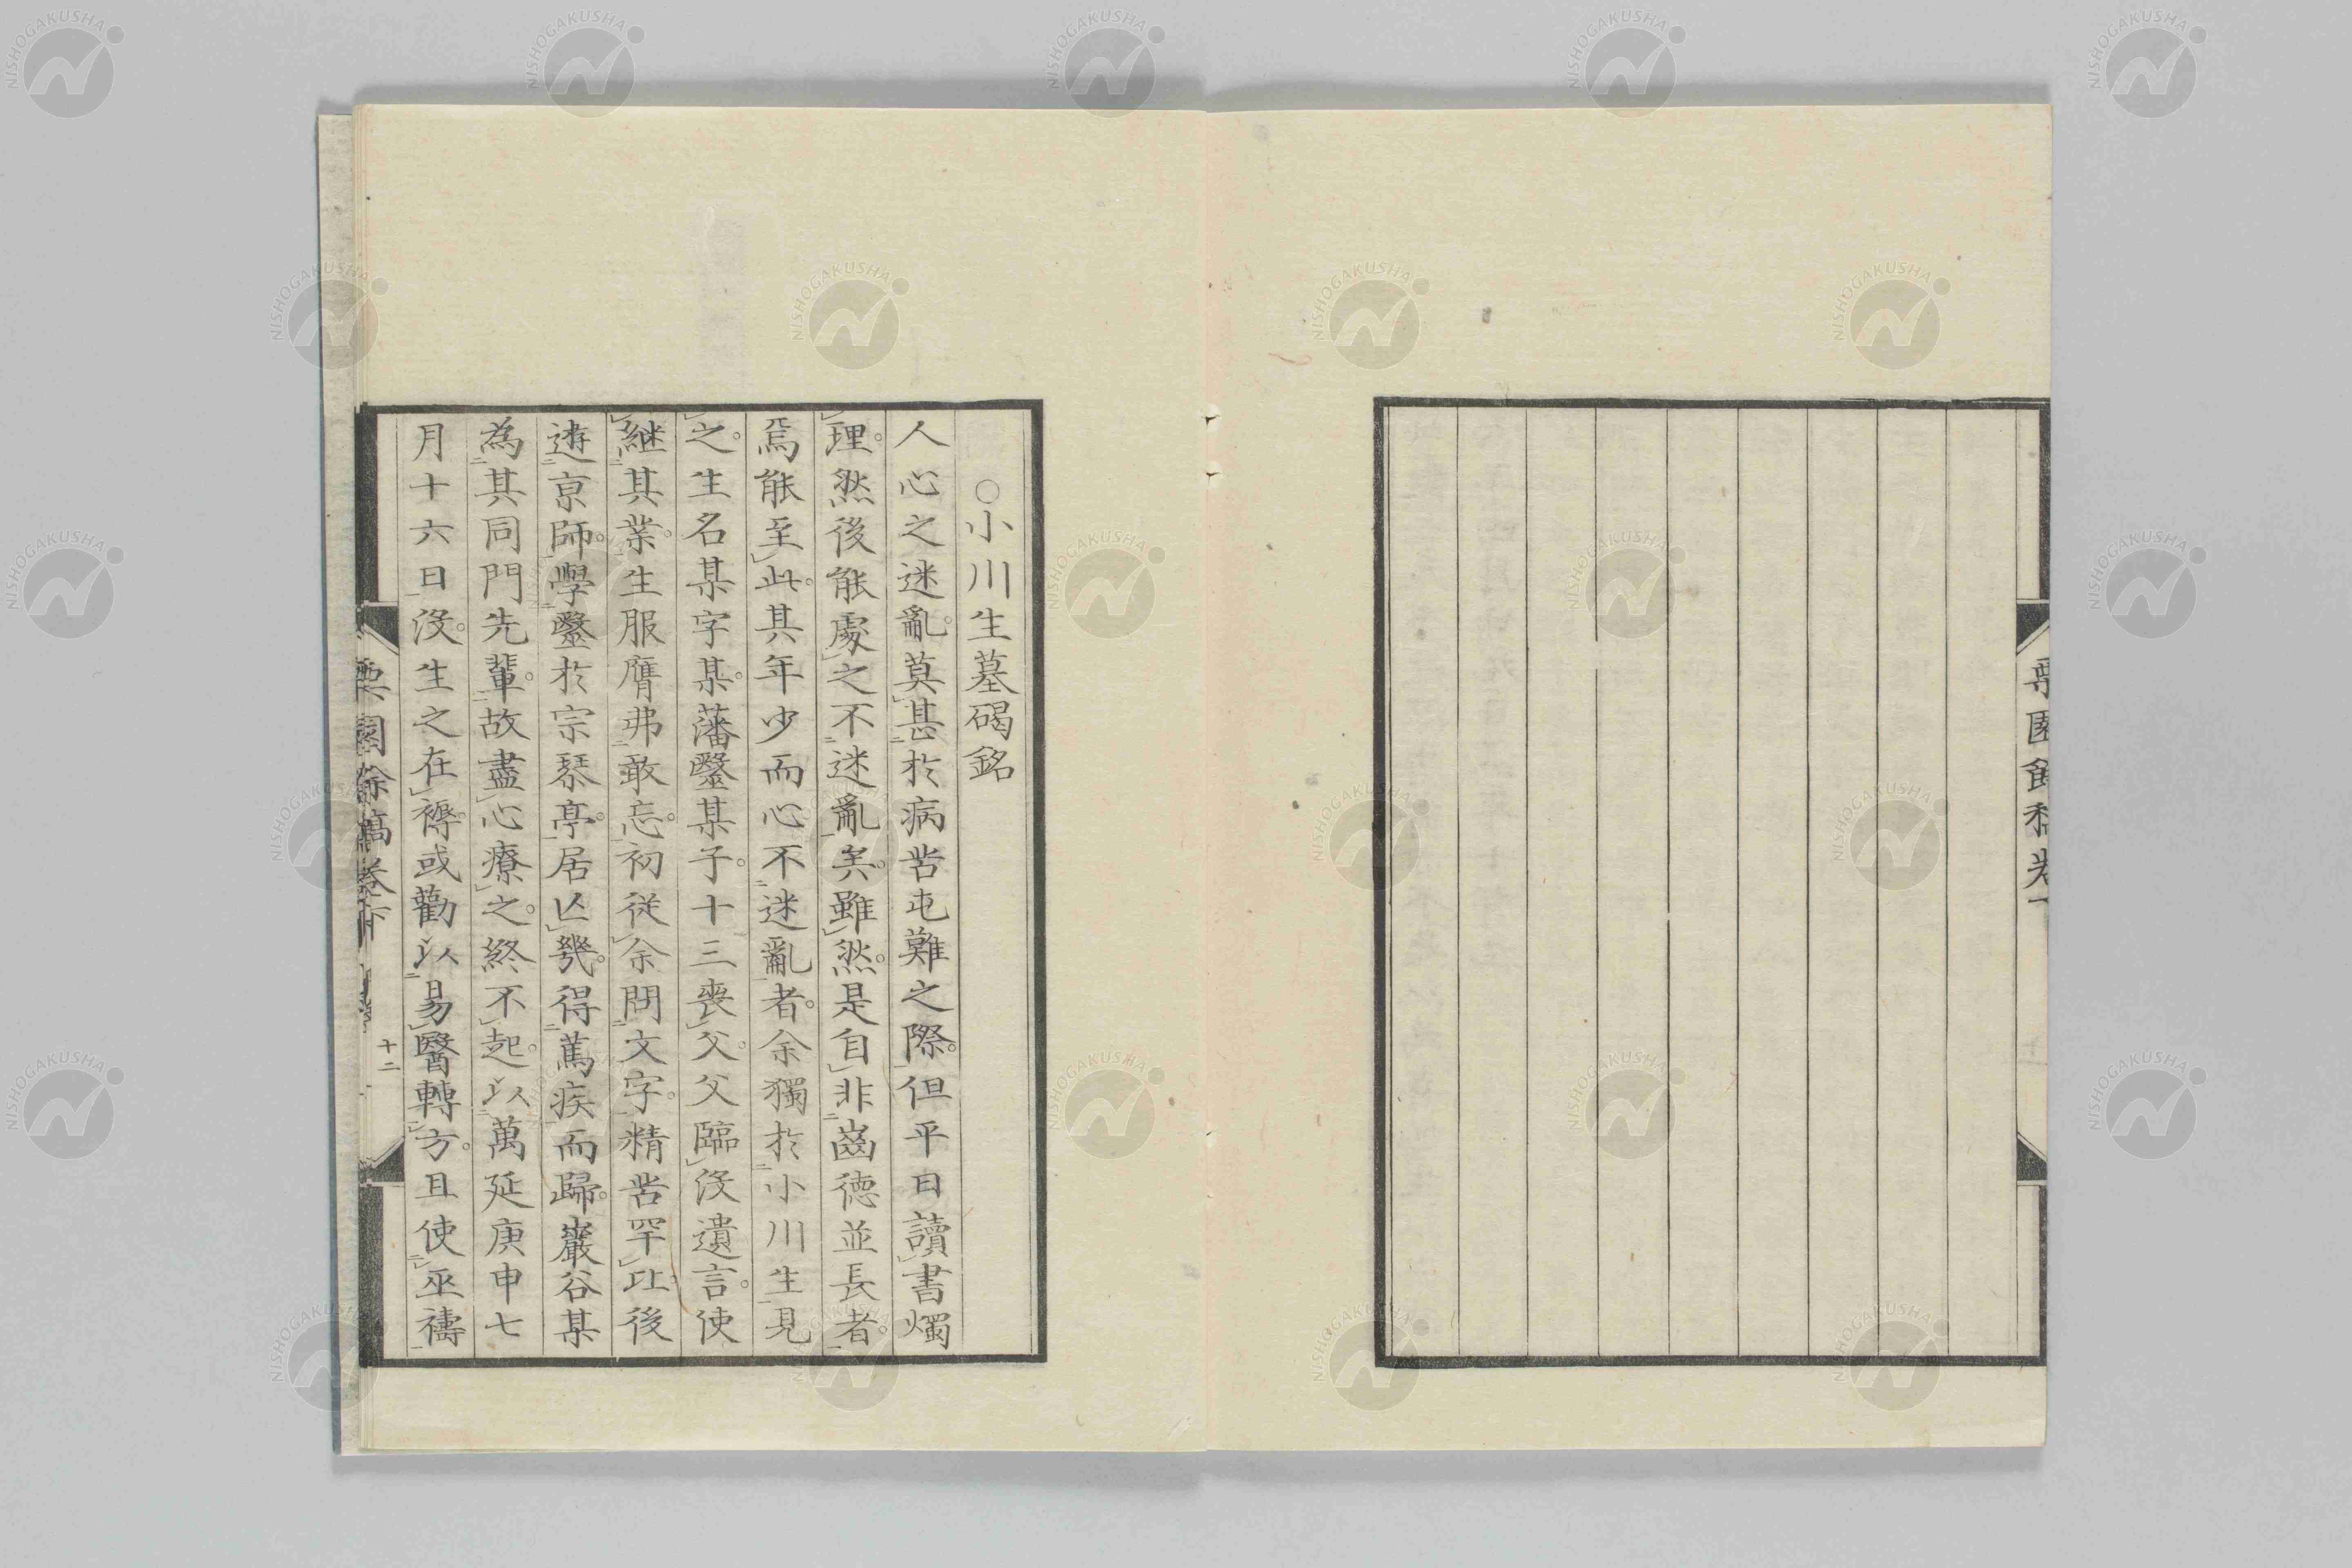 栗園餘稿卷下
○小川生墓碣銘
人心之迷亂。莫甚於病苦屯難之際。但平日讀書燭
理。然後能處之不迷亂矣。雖然。是自非齒德並長者。
焉能至此。其年少而心不迷亂者。余獨於小川生見
之。生名某字某。藩毉某子。十三喪父。父臨沒遺言。使
継其業。生服膺弗敢忘。初從余問文字。精苦罕比。後
遊京師。學毉於宗琴亭。居亾幾。得篤疾而歸。巖谷某
為其同門先輩。故盡心療之。終不起。以萬延庚申七
月十六日沒。生之在褥。或勸以易醫轉方。且使巫禱
栗園餘稿卷下
十二
NISHOGAKUSHA